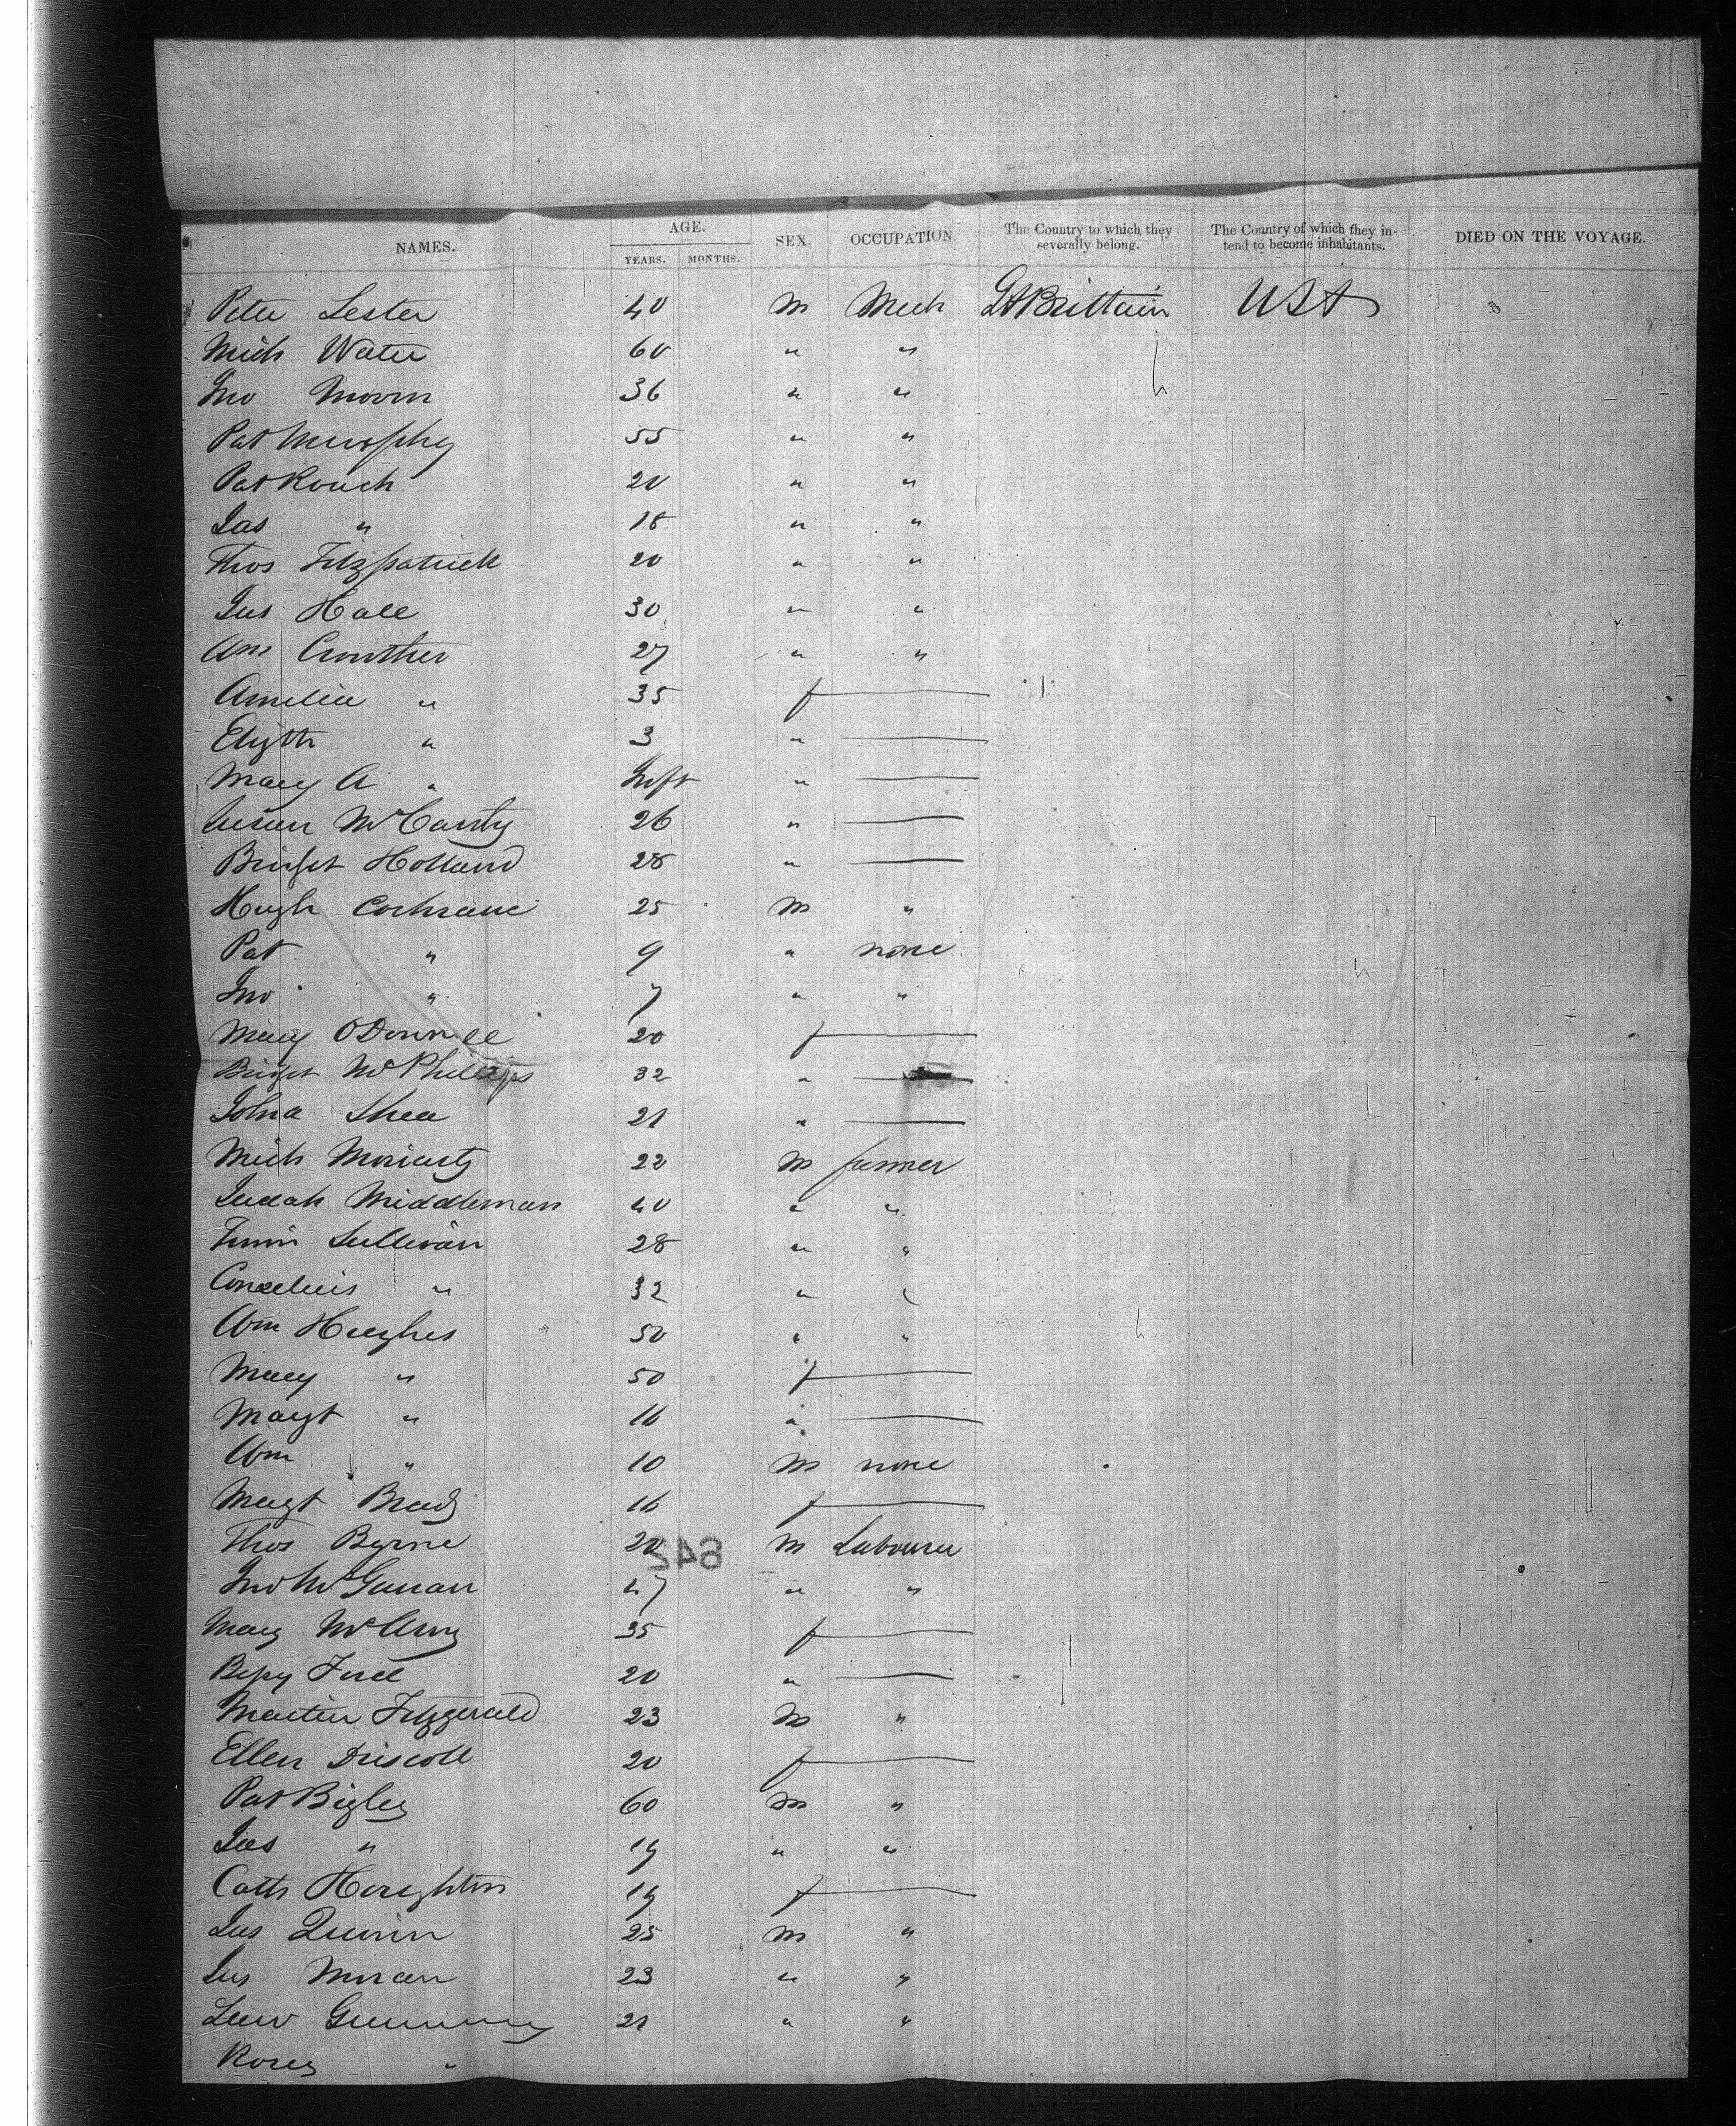 NAMES. AGE. YEARS. MONTHS. SEX. OCCUPATION. The Country to which they severally belong. The Country of which they intend to become inhabitants. DIED ON THE VOYAGE.
Peter Lester 40 M Mech Gt Brittain USA
Mich Water 60 " "
Jno Moorn 36 " "
Pat Murphy 55 " "
Pat Rouch 20 " "
Jas " 18 " "
Thos Fitzpatrick 20 " "
Jas Hall 30 " "
Wm Crowther 27 " "
Amelia " 35 f
Elizth " 3 "
Mary A " Inft "
Susan McCarty 26 "
Bridget Holland 28 "
Hugh Cochrane 25 M "
Pat " 9 " none
Jno " 7 " "
Mary ODonnell 20 f
Bridget McPhillips 32 "
Johna Shea 21 "
Mich Moriarty 22 M farmer
Judah Middleman 40 " "
Sullivan 28 " "
Cornelius " 32 " "
Wm Hughes 50 " "
Mary " 50 f
Margt " 16 "
Wm " 10 M none
Margt Brady 16 f
Thos Byrne 20 M Labourer
642
Jno 47 " "
Mary 35 f
Bessy 20 "
Martin Fitzgerald 23 M "
Ellen Driscoll 20 f
Pat Bigley 60 M "
Jas " 19 " "
Cath Houghton 19 f
Jas Quinn 25 M "
Jas Moran 23 " "
21 " "
Rosey "